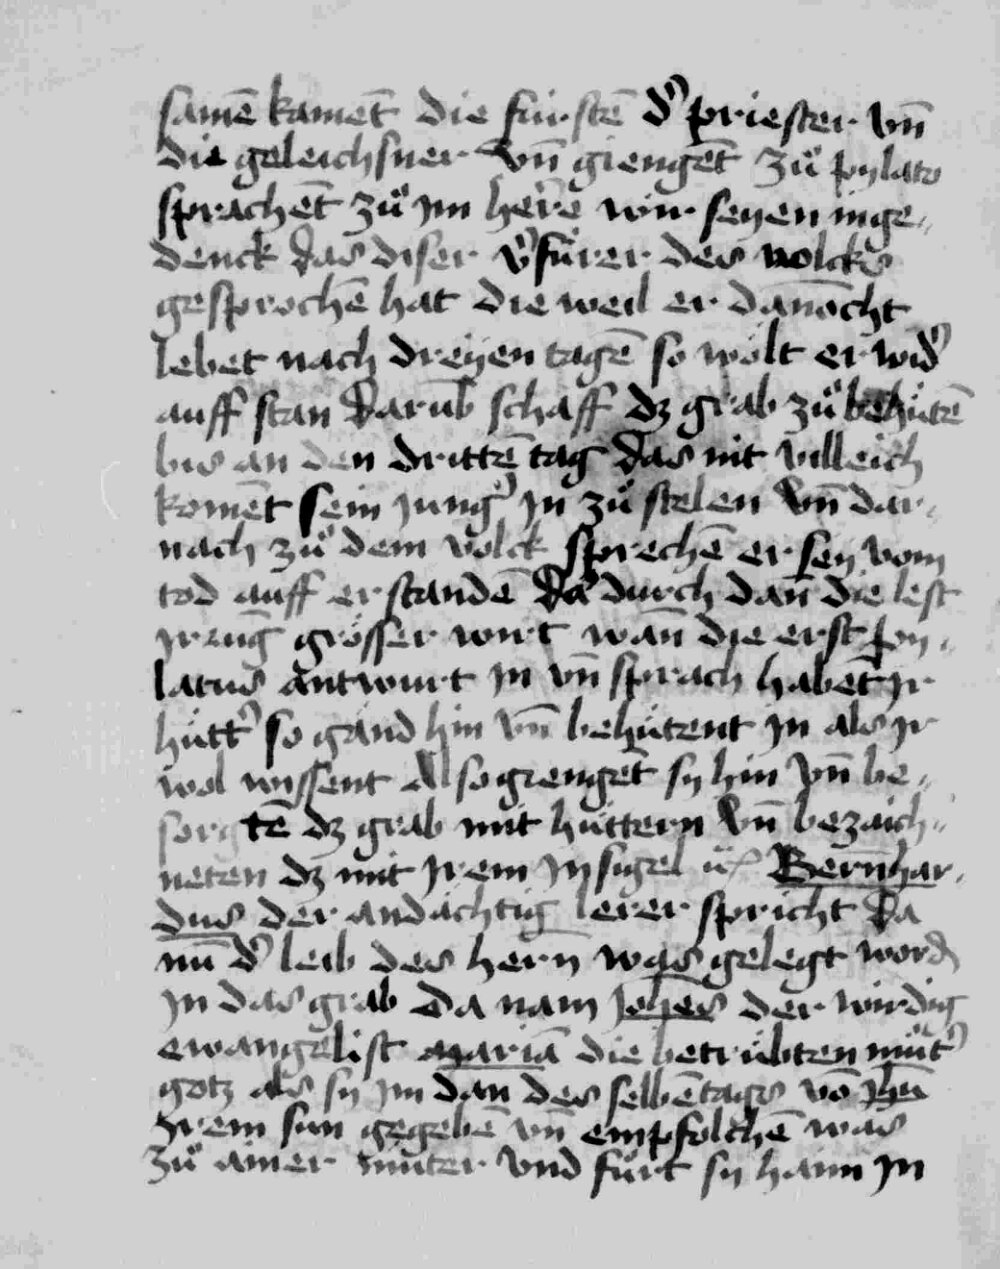 samē kamēt die fürstē dˀ priester vn̄
die geleichsner vn̄ giengēt zů pylato
sprachēt zů jm herē wir seyen inge„
denck das diser vˀfürer des volcks
gesprochē hat die weil er dānocht
lebet nach dreyen tagē so wölt er widˀ
auff stan darūb schaff dz grab zů behütē
bis an den drittē tag das nit villeich
komēt sein jungˀ jn zů stelen vn̄ dar„
nach zů dem volck sprechē er sey vom
tod auff erstandē da durch dan̄ die lest
jrrūg grösser wirt wan̄ die erst py„
latus antwurt jn vn̄ sprach habēt jr
hüttˀ so gand hin vn̄ behütent jn als jr
wol wissent Also giengēt sy hin vn̄ be„
sorgtē dz grab mit hüttern vn̄ bezaich„
neten dz mit jrem jnsigel Bernhar„
dus der andächtig lerer spricht da
nū dˀ leib des hern was gelegt word
jn das grab da nam joh̄es der wirdig
ewangelist mariā die betrübten mütˀ
gotz als sy jm dan des selbē tags vō jh̄u
jrem sun gegebē vn̄ empfolchē was
zů ainer můter vnd fürt sy haim jn